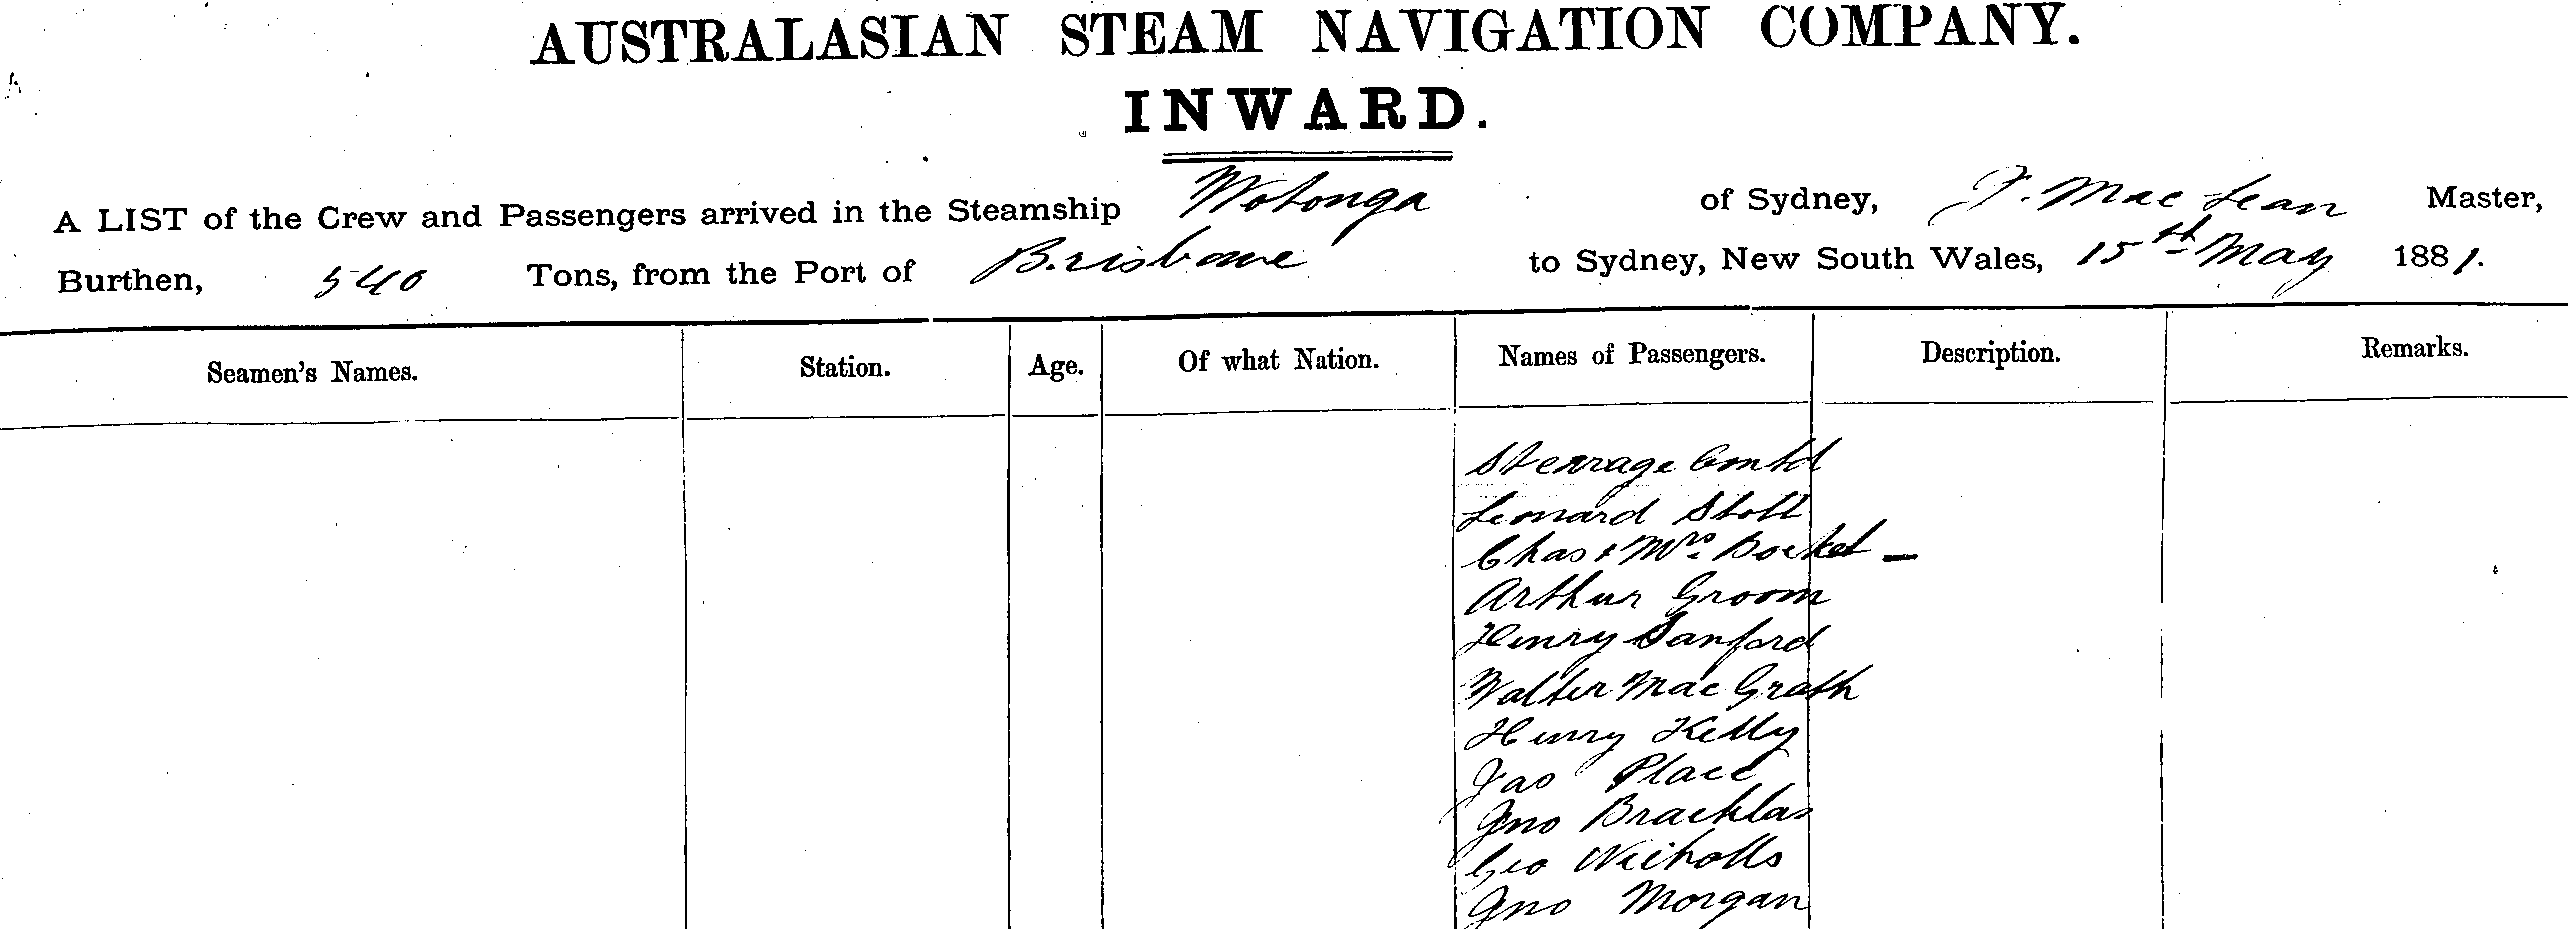 AUSTRALASIAN STEAM NAVIGATION COMPANY.
INWARD.
A LIST of the Crew and Passengers arrived in the Steamship Wotonga of Sydney, F. MacLean Master,
Burthen, 540 Tons, from the Port of Brisbane to Sydney, New South Wales, 15th May 1881.
Seamen's Names. Station. Age. Of what Nation. Names of Passengers. Description. Remarks.
Steerage Contd
Leonard Stott
Chas & Mrs. Bocket –
Arthur Groom
Henry Sanford
Walter MacGrath
Henry Kelly
Jas Place
Jno
Geo Nicholls
Jno Morgan